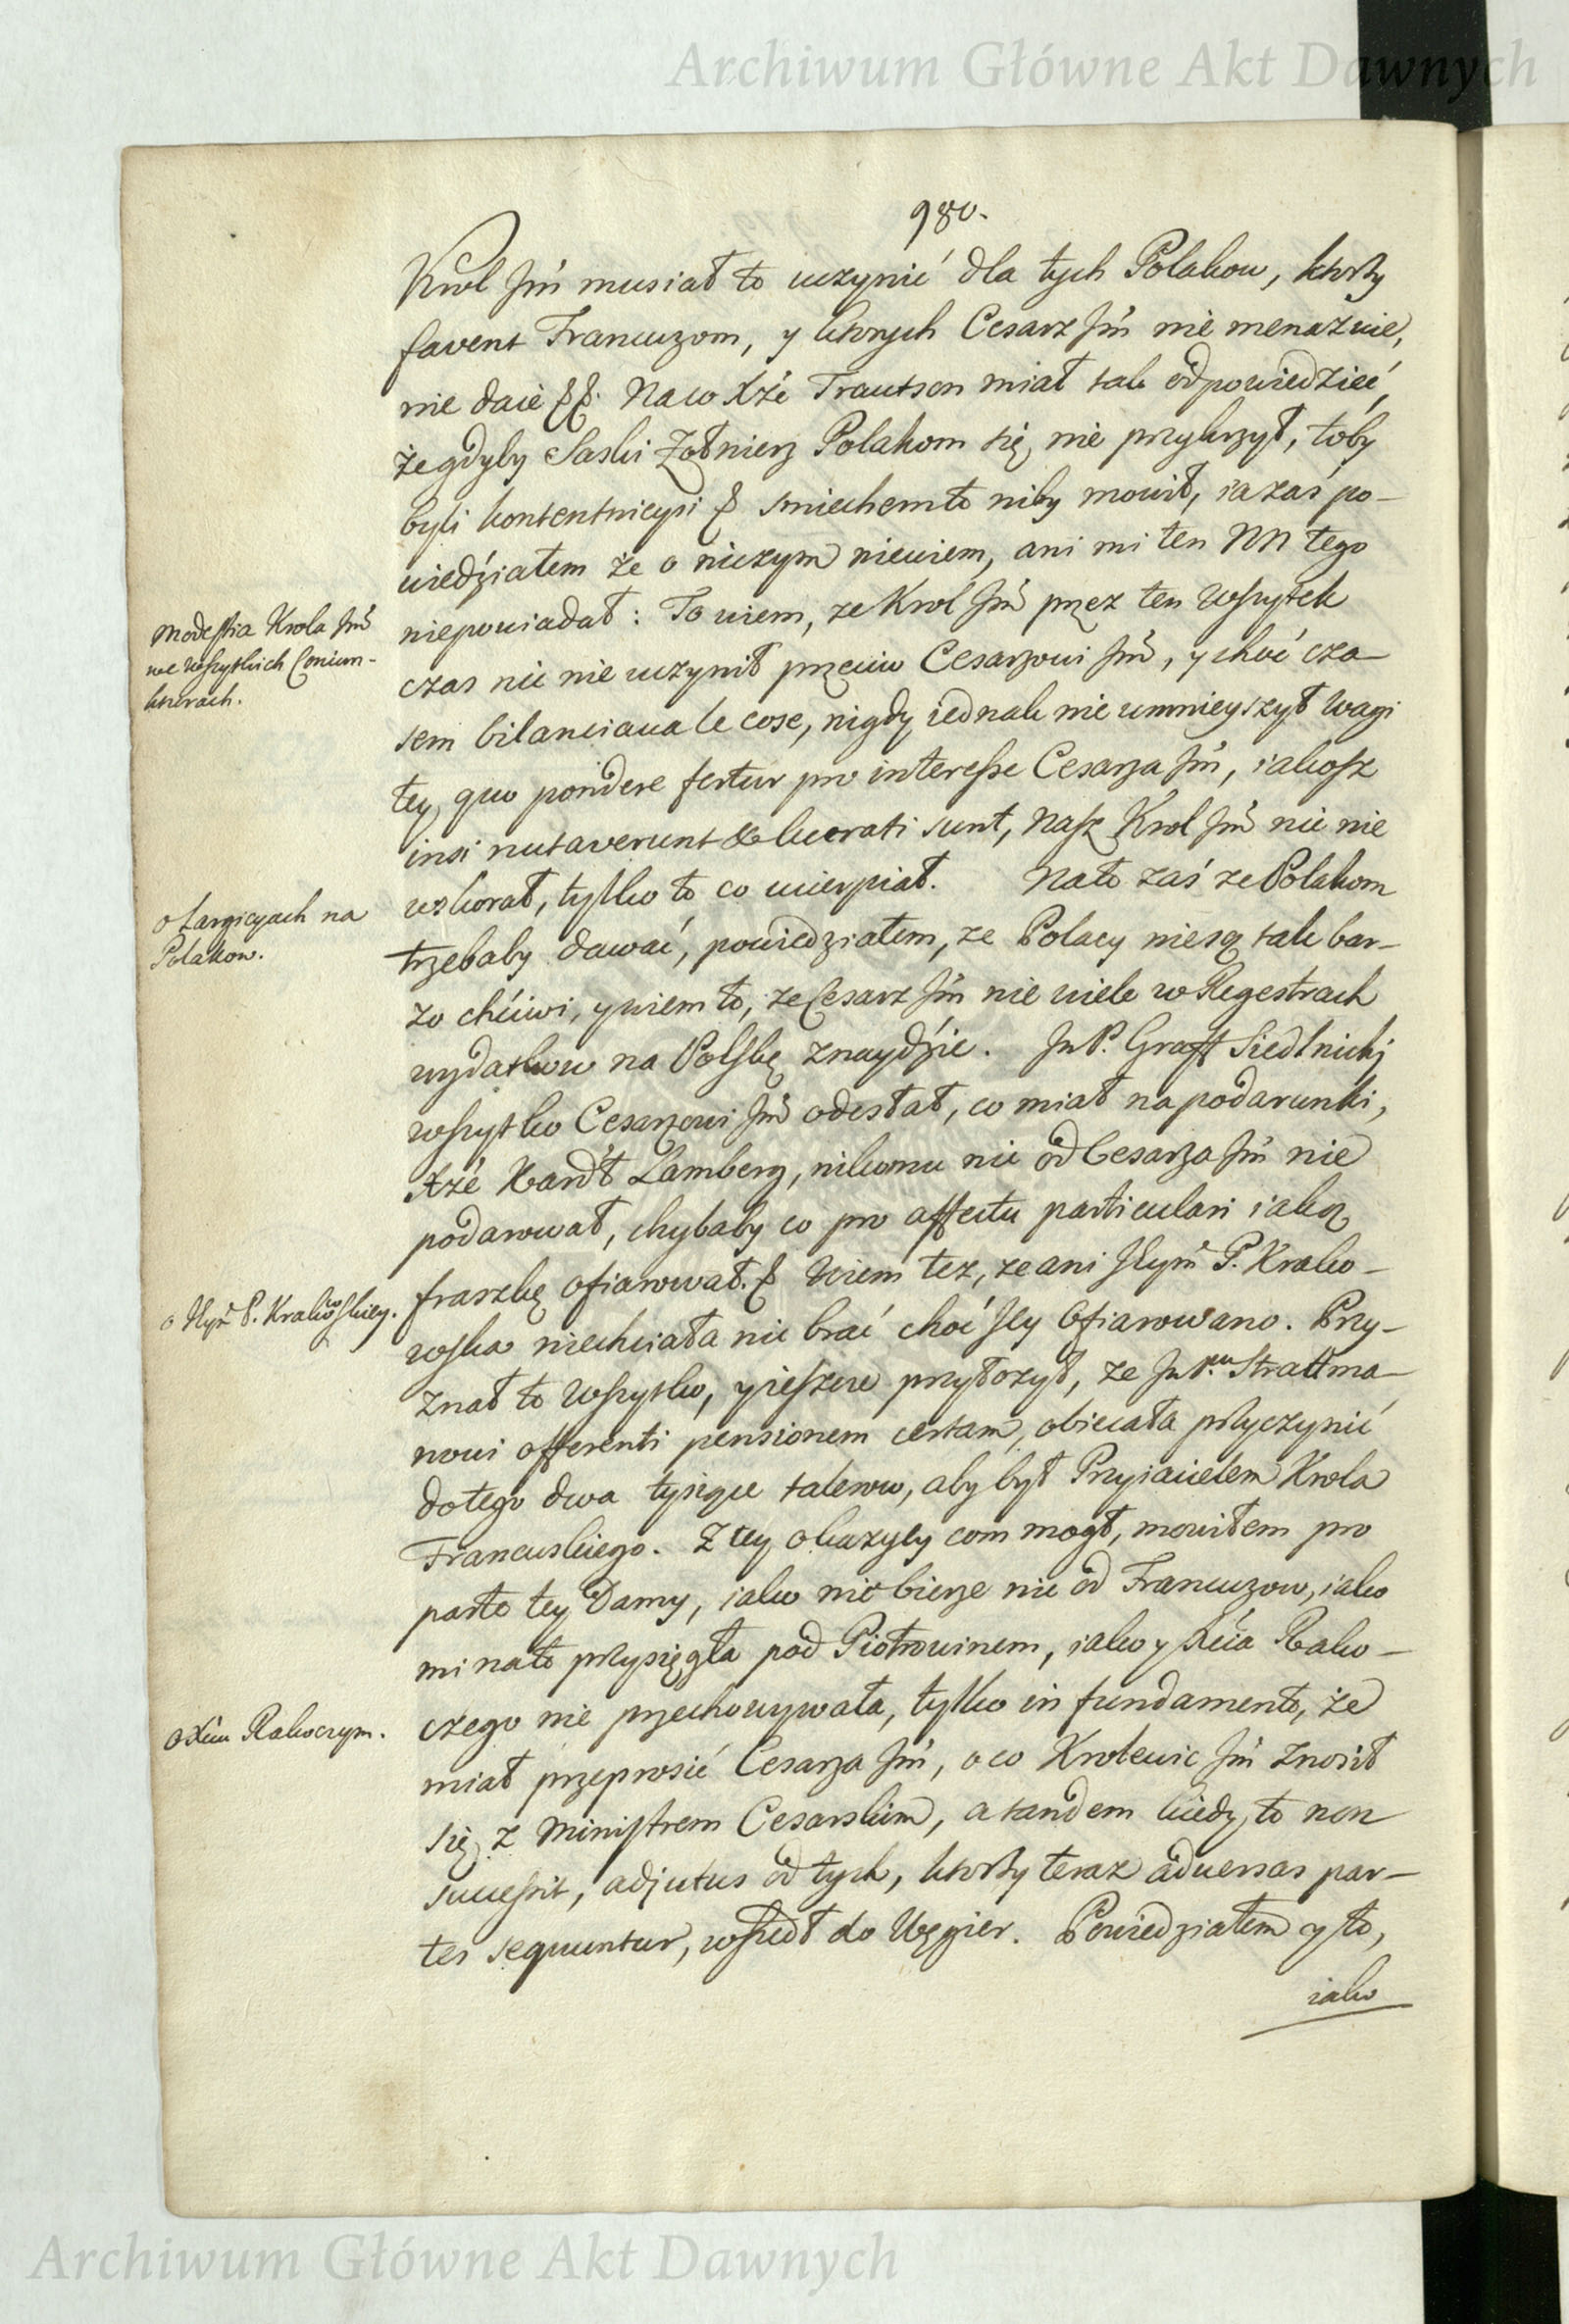 Archiwum Główne Akt Dawnych
980.
Krol Jm̃ musiał to uczynić dla tych Polakow, ktorzy
favent Francuzom, y ktorych Cesarz Jm̃ nie menażuie,
nie daie &&. Na co Xże Trautson miał tak odpowiedzieć,
że gdyby Saski Zołnierz Polakom się nie przykrzył, toby
byli kontentnieysi & smiechem to niby mowił, ia zaś po-
wiedziałem że o niczym niewiem, ani mi ten NN tego
niepowiadał: To wiem, ze Krol Jm̃ przez ten wszytek
Modestia Krola Jm̃
we wszytkich Coniun-
kturach.
czas nic nie uczynił przeciw Cesarzowi Jm̃, y choć cza-
sem bilanciaua le cose, nigdy iednak nie umnieyszył wagi
tey, quo pondere fertur pro interesse Cesarza Jm̃, iakosz
insi nutaverunt & lucrati sunt, nasz Krol Jm̃ nic nie
wskorał, tylko to co ucierpiał. Na to zaś ze Polakom
o Largicyach na
Polakow.
trzebaby dawać, powiedziałem, ze Polacy niesą tak bar-
zo chciwi, y wiem to, ze Cesarz Jm̃ nie wiele w Regestrach
wydatkow na Polskę znaydzie. JmP. Graff Siedlnickj
wszytko Cesarzowi Jm̃ odesłał, co miał na podarunki,
Xże Kard̃ł Lamberg, nikomu nic od Cesarza Jm̃ nie
podarował, chybaby co pro affectu particulari iaką
fraszkę ofiarował. & Wiem tez, ze ani JEym̃ P. Krako-
o JEym̃ P. Krakowskiey.
wska niechciała nic brać choć Jey Ofiarowano. Przy-
znał to wszytko, y ieszcze przyłozył, ze JmP.nu Strattma-
nowi offerenti pensionem certam, obiecała przyczynić
do tego dwa tysiące talerow, aby był Przyiacielem Krola
Francuskiego. Z tey okazyey com mogł, mowiłem pro
parte tey Damy, iako nie bierze nic od Francuzow, iako
mi na to przysięgła pod Piotrowinem, iako y Xcia Rako-
czego nie przechowywała, tylko in fundamento, że
o Xciu Rakoczym.
miał przeprosić Cesarza Jm̃, o co Krolewic Jm̃ znosił
się z Ministrem Cesarskim, a tandem kiedy to non
successit, adjutus od tych, ktorzy teraz adversas par-
tes sequuntur, wszedł do Węgier. Powiedziałem y to,
iako
Archiwum Główne Akt Dawnych